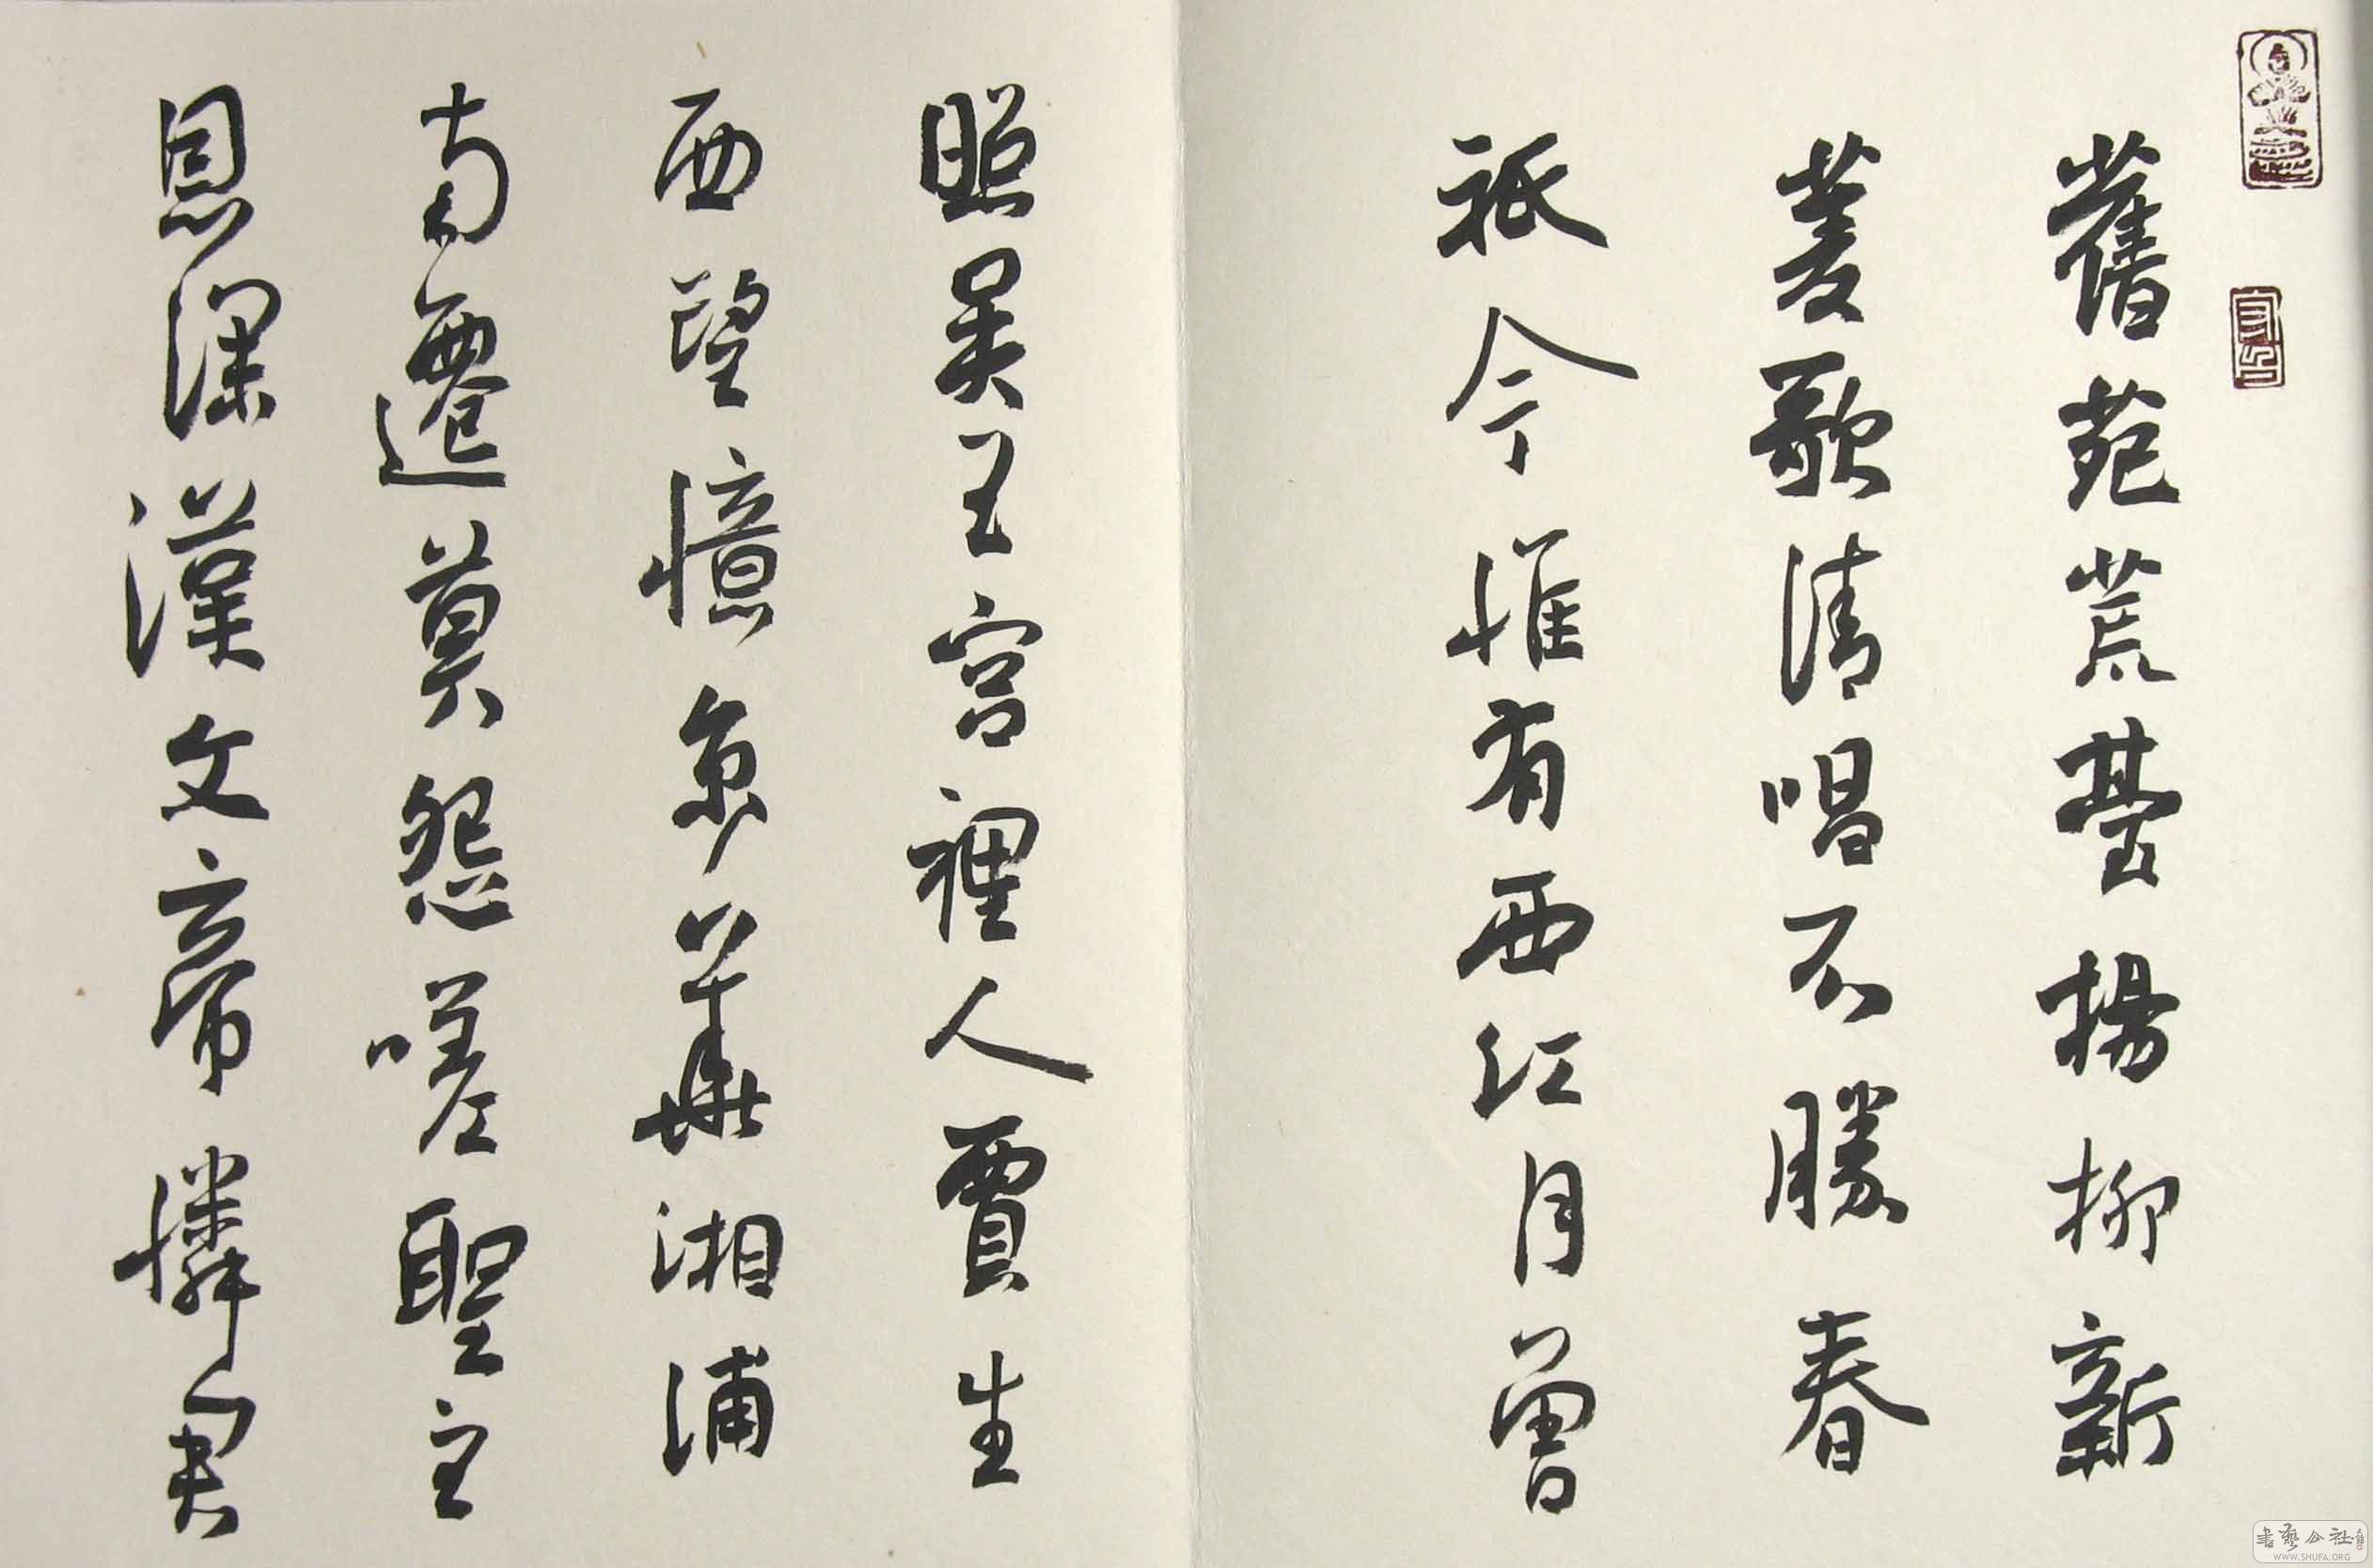 舊苑荒臺楊柳新
菱歌清唱不勝春
祗今惟有西江月曾
照吳王宮裡人賈生
西望憶京華湘浦
南遷莫怨嗟聖主
恩深漢文帝憐君
書藝公社
WWW.SHUFA.ORG